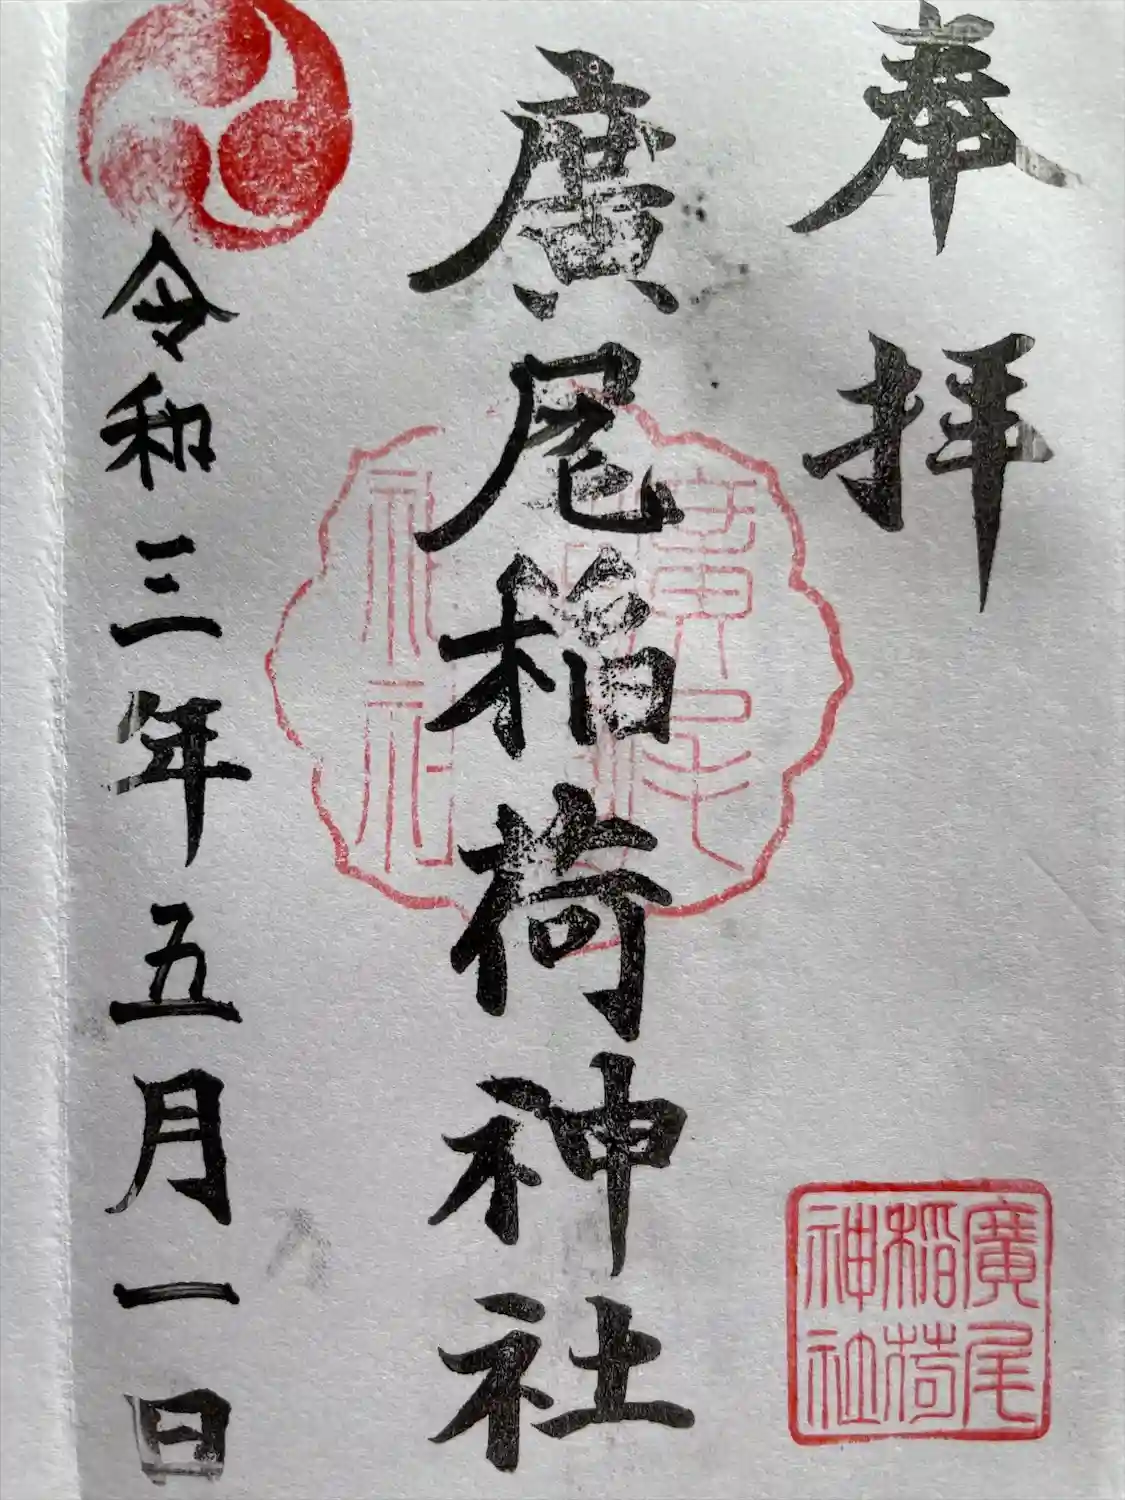 奉拝
廣尾稲荷神社
令和三年五月一日
廣尾
稲荷
神社
廣尾
稲荷
神社